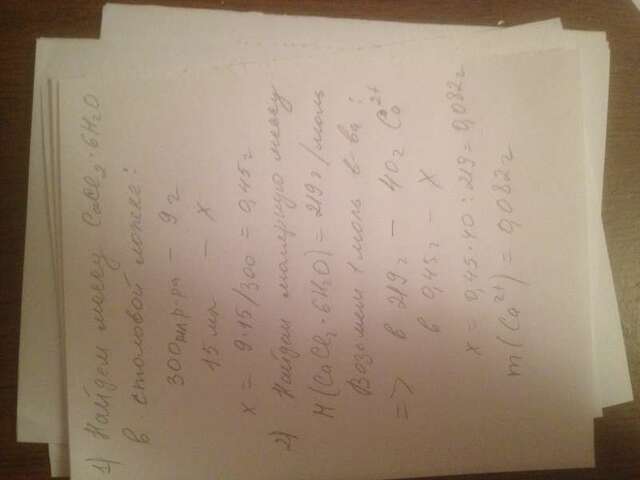 1) Найдем массу CaCl₂·6H₂O
в столовой ложке:
300мл р-ра – 9 г
15 мл – х
х = 9·15/300 = 0,45 г
2) Найдем молярную массу
M(CaCl₂·6H₂O) = 219 г/моль
Возьмем 1 моль в-ва:
=> в 219 г – 40 г Ca²⁺
в 0,45 г – х
х = 0,45·40:219 = 0,082 г
m(Ca²⁺) = 0,082 г